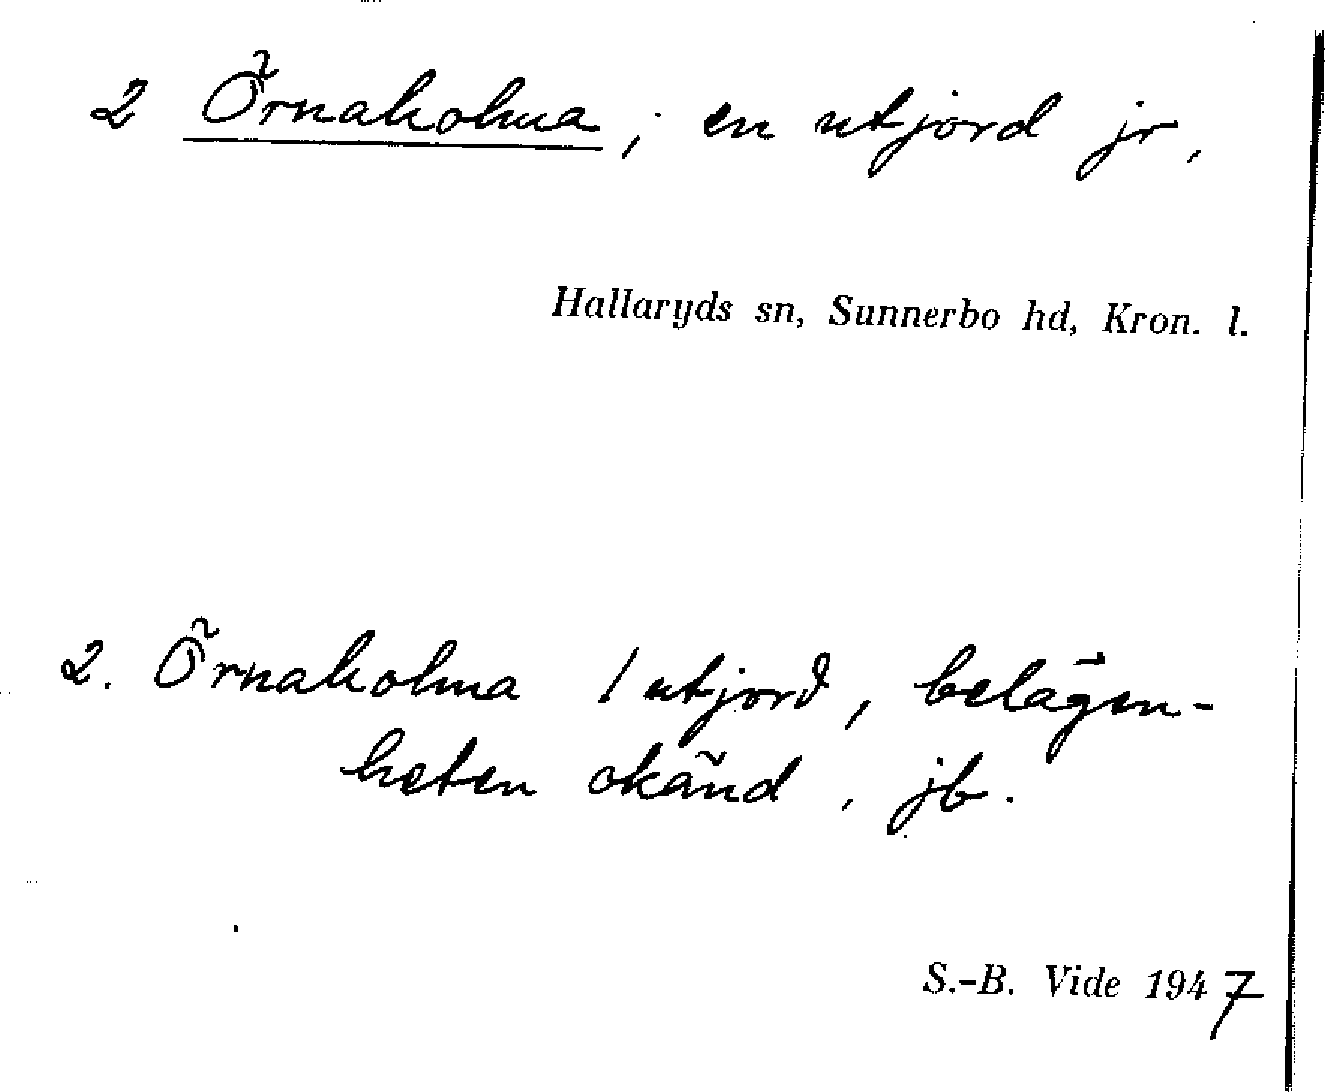 2 Örnaholma; en utjord jr,
Hallaryds sn, Sunnerbo hd, Kron. l.
2. Örnaholma 1 utjord, belägen-
heten okänd, jb.
S.-B. Vide 1947